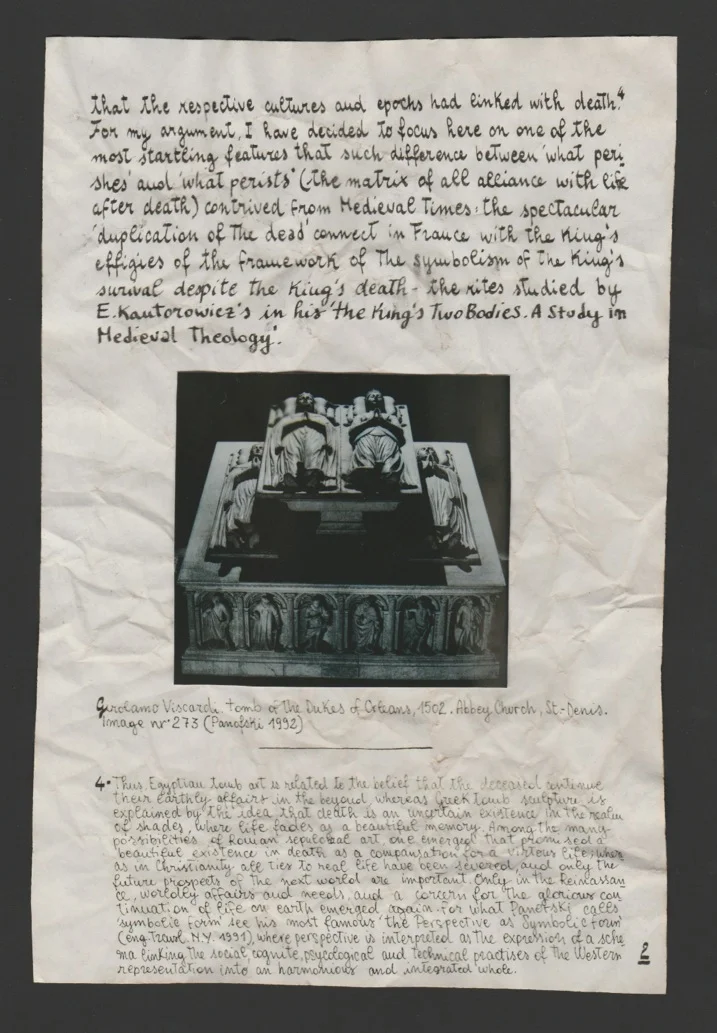 that the respective cultures and epochs had linked with death.⁴
For my argument, I have decided to focus here on one of the
most startling features that such difference between 'what peri
shes' and 'what perists' (the matrix of all alliance with life
after death) contrived from Medieval Times: the spectacular
'duplication of the dead' connect in France with the King's
effigies of the framework of the symbolism of the King's
surival despite the King's death - the rites studied by
E. Kantorowicz's in his 'the King's Two Bodies. A Study in
Medieval Theology'.
Girolamo Viscardi, tomb of the Dukes of Orleans, 1502. Abbey Church, St.-Denis.
Image nr 273 (Panofski 1992)
4. Thus, Egyptian tomb art is related to the belief that the deceased continue
their earthly affairs in the beyond, whereas Greek tomb sculpture is
explained by the idea that death is an uncertain existence in the realm
of shades, where life fades as a beautiful memory. Among the many
possibilities of Roman sepulcral art, one emerged that promised a
beautiful existence in death as a compansation for a virtous life; wher
as in Christianity all ties to real life have been severed, and only the
future prospects of the next world are important. Only in the Reinassan
ce, worldly affairs and needs, and a corcern for the glorious con
tinuation of life on earth emerged again. For what Panofski calls
'symbolic form' see his most famous 'the Perspective as Symbolic form'
(eng. transl. N.Y. 1991), where perspective is interpreted as the expression of a sche
ma linking the social, cognite, psycological and technical practises of the Western
representation into an harmonious and integrated whole.
2